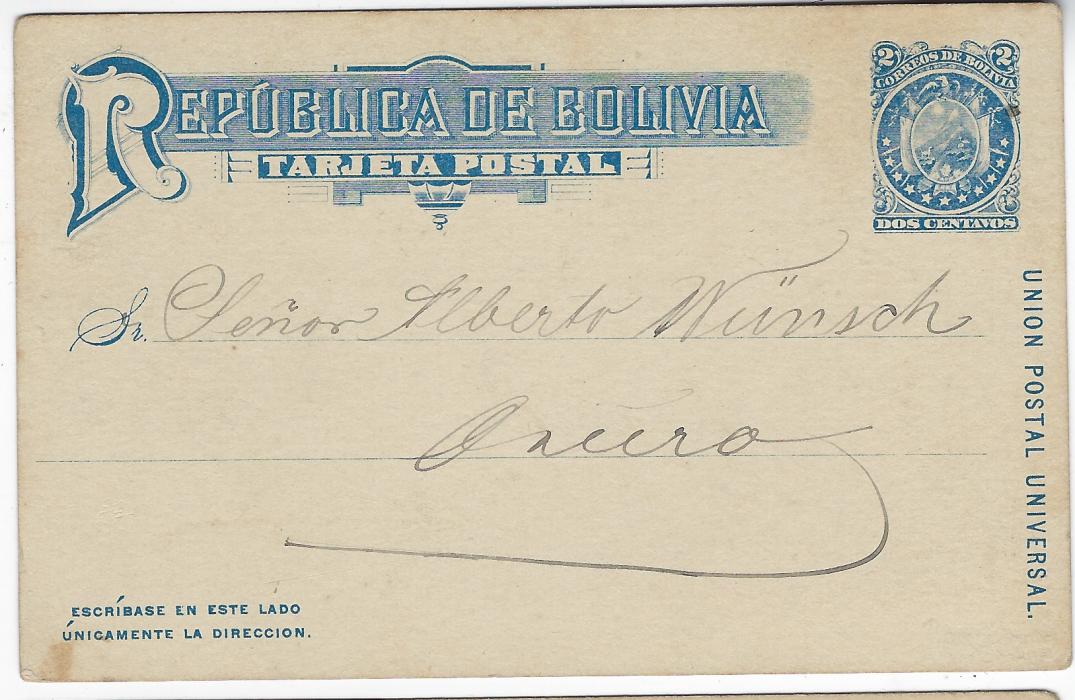 REPÚBLICA DE BOLIVIA
TARJETA POSTAL
2 2
CORREOS DE BOLIVIA
DOS CENTAVOS
Sr. Señor Alberto Wünsch
Oruro
UNION POSTAL UNIVERSAL.
ESCRÍBASE EN ESTE LADO
ÚNICAMENTE LA DIRECCION.